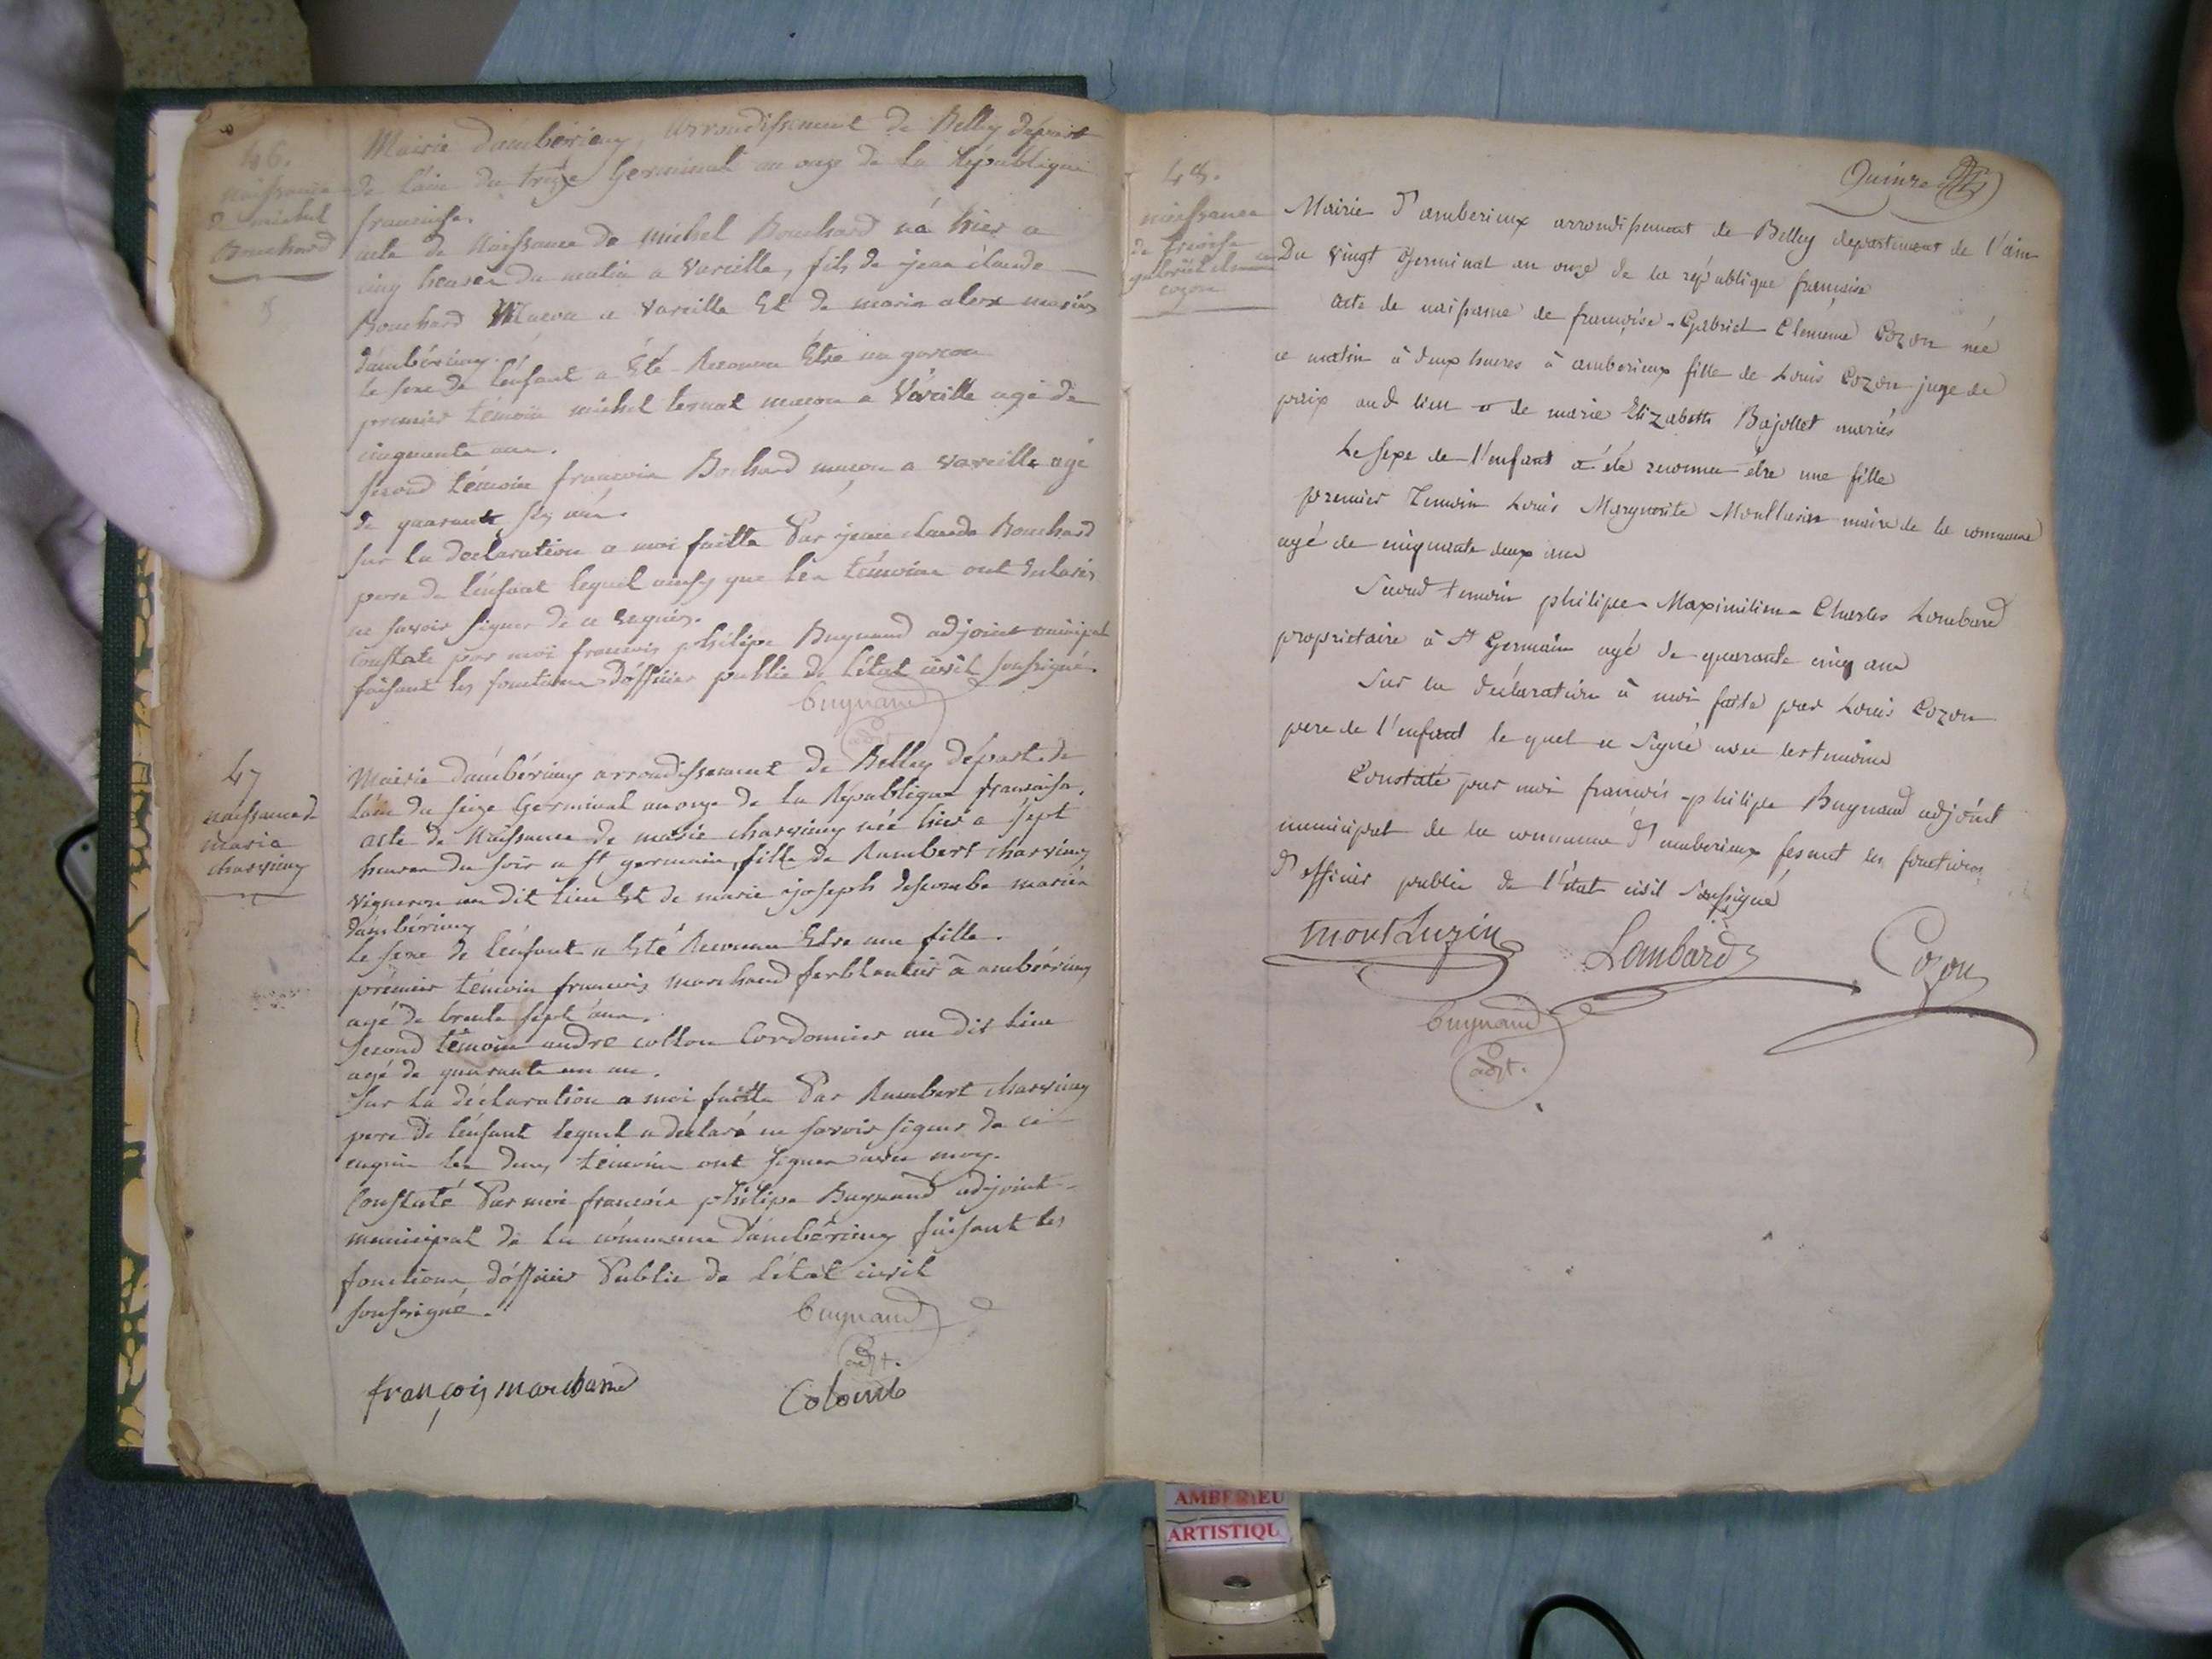 46.
naissance
de michel
Bouchard
Mairie d'amberieux, arrondissement de Belley départ
de l'ain du treize Germinal an onze de la République
francaise.
acte de Naissance de michel Bouchard né hier a
cinq heures du matin a Vareille, fils de jean claude
Bouchard Macon a Vareille Et de marie mariés
d'ambérieux.
le sexe de l'enfant a Été Reconnu Etre un garcon
premier témoin michel macon a Vareille agé de
cinquante ans.
second témoin francois Bochard maçon a Vareille agé
de quarante six ans.
sur la declaration a moi faitte Par jean claude Bouchard
pere de l'enfant lequel ainsy que les témoins ont declarés
ne savoir signer de ce requis.
Constaté par moi francois philipe Bugnand adjoint municipal
faisant les fonctions d'officier public de l'état civil soussigné.
Bugnand
adjt.
47
naissance de
marie
charvieux
Mairie d'ambérieux arrondissement de Belley départ. de
l'ain du seize Germinal an onze de la République francaise.
acte de Naissance de marie charvieux née hier a sept
heures du soir a st germain, fille de Rambert charvieux
vigneron au dit lieu Et de marie joseph descombe mariés
d'ambérieux
le sexe de l'enfant a Eté Reconnu Etre une fille.
prémier témoin francois marchand ferblantier à ambérieux
agé de trente sept ans.
second témoin andré Cordonnier au dit lieu
agé de quarante un an.
sur la déclaration a moi faitte Par Rambert charvieux
pere de l'enfant lequel a declaré ne savoir signer de ce
enquis les deux témoins ont signer avec moy.
Constaté Par moi francois philipe Bugnand adjoint
municipal de la commune d'ambérieux faisant les
fonctions d'officier Public de l'état civil
soussigné.
Bugnand
adjt.
françois marchand
48.
naissance
de
gabriel
cozon
Quinze
Mairie d'amberieux arrondissement de Belley departement de l'ain
Du vingt Germinal an onze de la république francaise
acte de naissance de françoise-Gabriel-Clemence Cozon née
ce matin à deux heures à amberieux fille de Louis Cozon juge de
paix aud lieu et de marie Elizabeth Bajollet mariés
Le sexe de l'enfant a été reconnu être une fille
premier Temoin Louis Marguerite Montluzin maire de la commune
agé de cinquante deux ans
Second temoin philipe-Maximilien-Charles Lombard
proprietaire à St Germain agé de quarante cinq ans
Sur la déclaration à moi faite par Louis Cozon
pere de l'enfant le quel a Signé avec les temoins
Constaté par moi françois-philipe Bugnand adjoint
municipal de la commune d'amberieux fesant les fonctions
d'officier public de l'état civil Soussigné
montLuzin
Lombard
Cozon
Bugnand
adjt.
AMBERIEU
ARTISTIQU